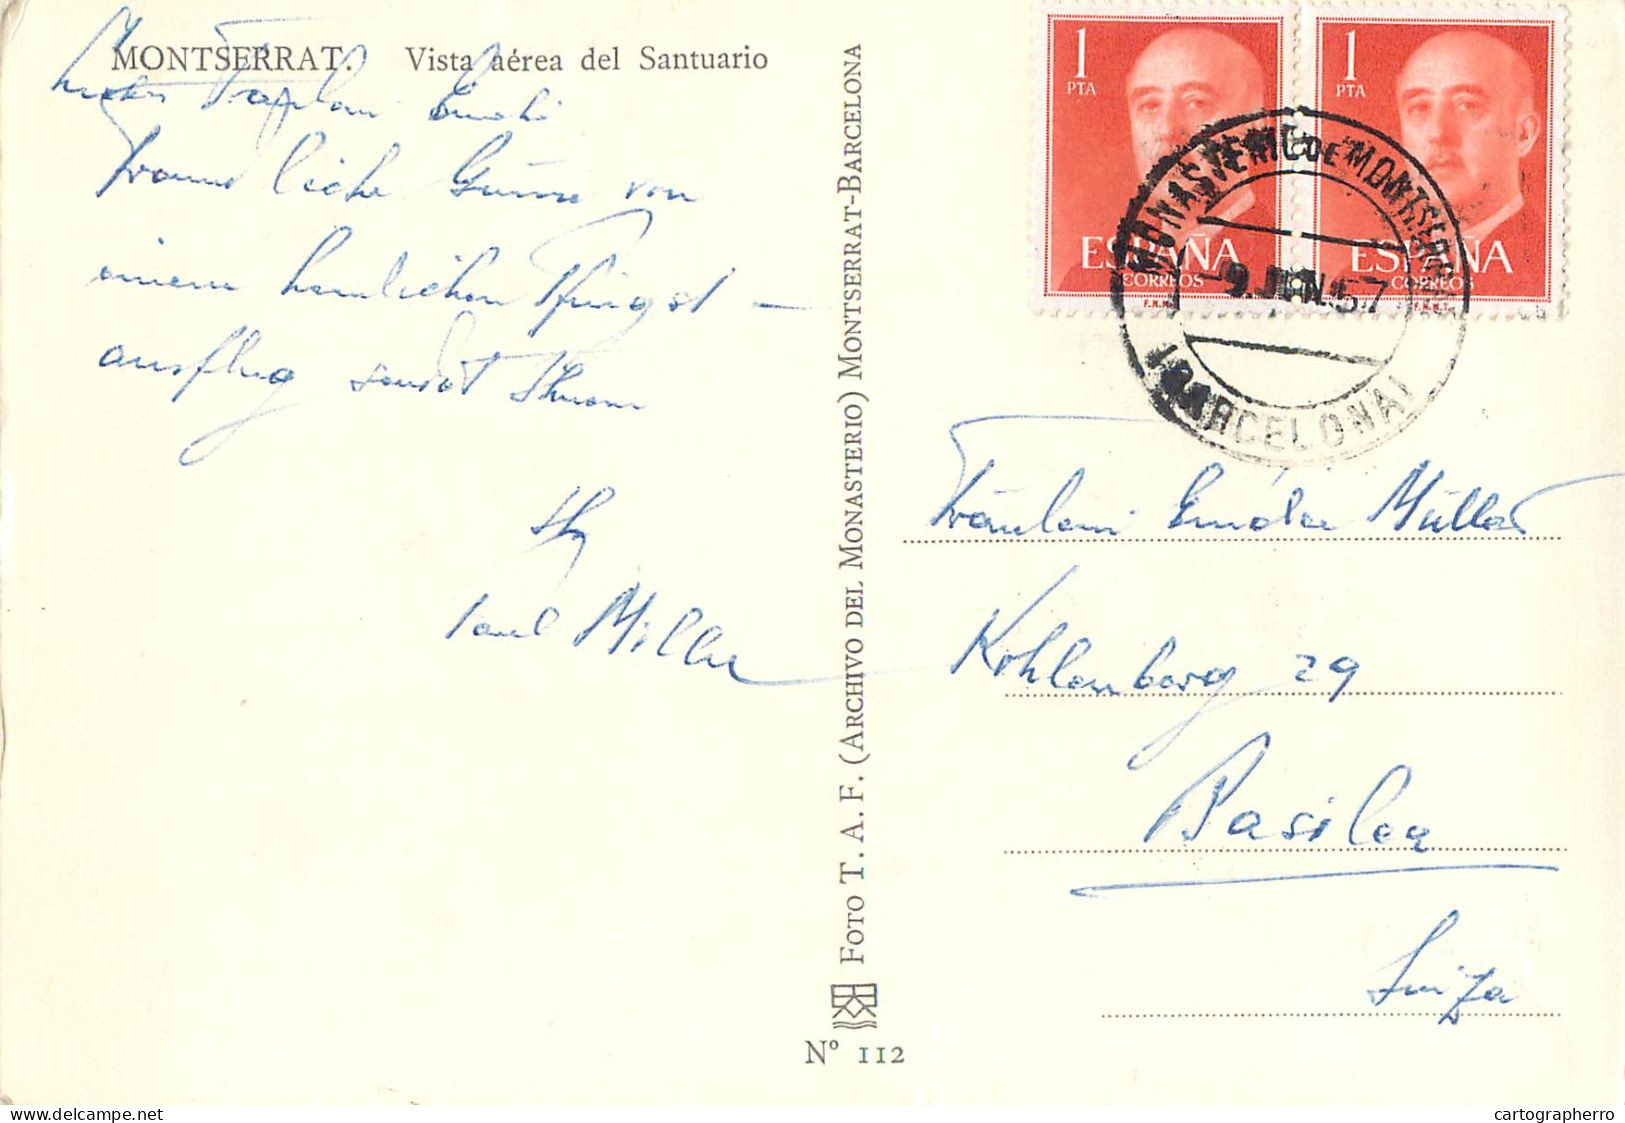 MONTSERRAT. Vista aérea del Santuario
Fräulein
Freundliche Grüsse von
einem herrlichen Pfingst-
ausflug sendet Ihnen
Ihr
Paul Müller
FOTO T. A. F. (ARCHIVO DEL MONASTERIO) MONTSERRAT-BARCELONA
Nº 112
1 PTA
ESPAÑA
CORREOS
F.N.M.T.
1 PTA
ESPAÑA
CORREOS
F.N.M.T.
MONASTERIO DE MONTSERRAT
9 JUN. 57
(BARCELONA)
Fräulein Müller
Kohlenberg 29
Basilea
Suiza
delcampe.net
cartographerro